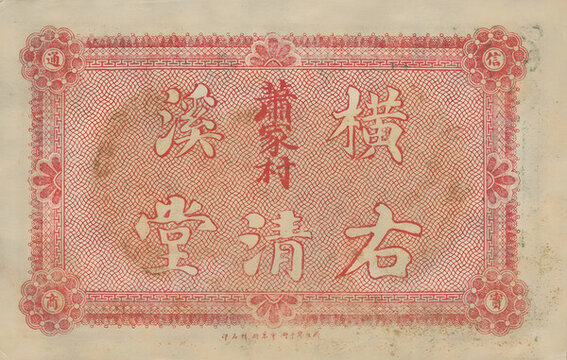 信 通
橫 溪
蕭家村
右清堂
寶 商